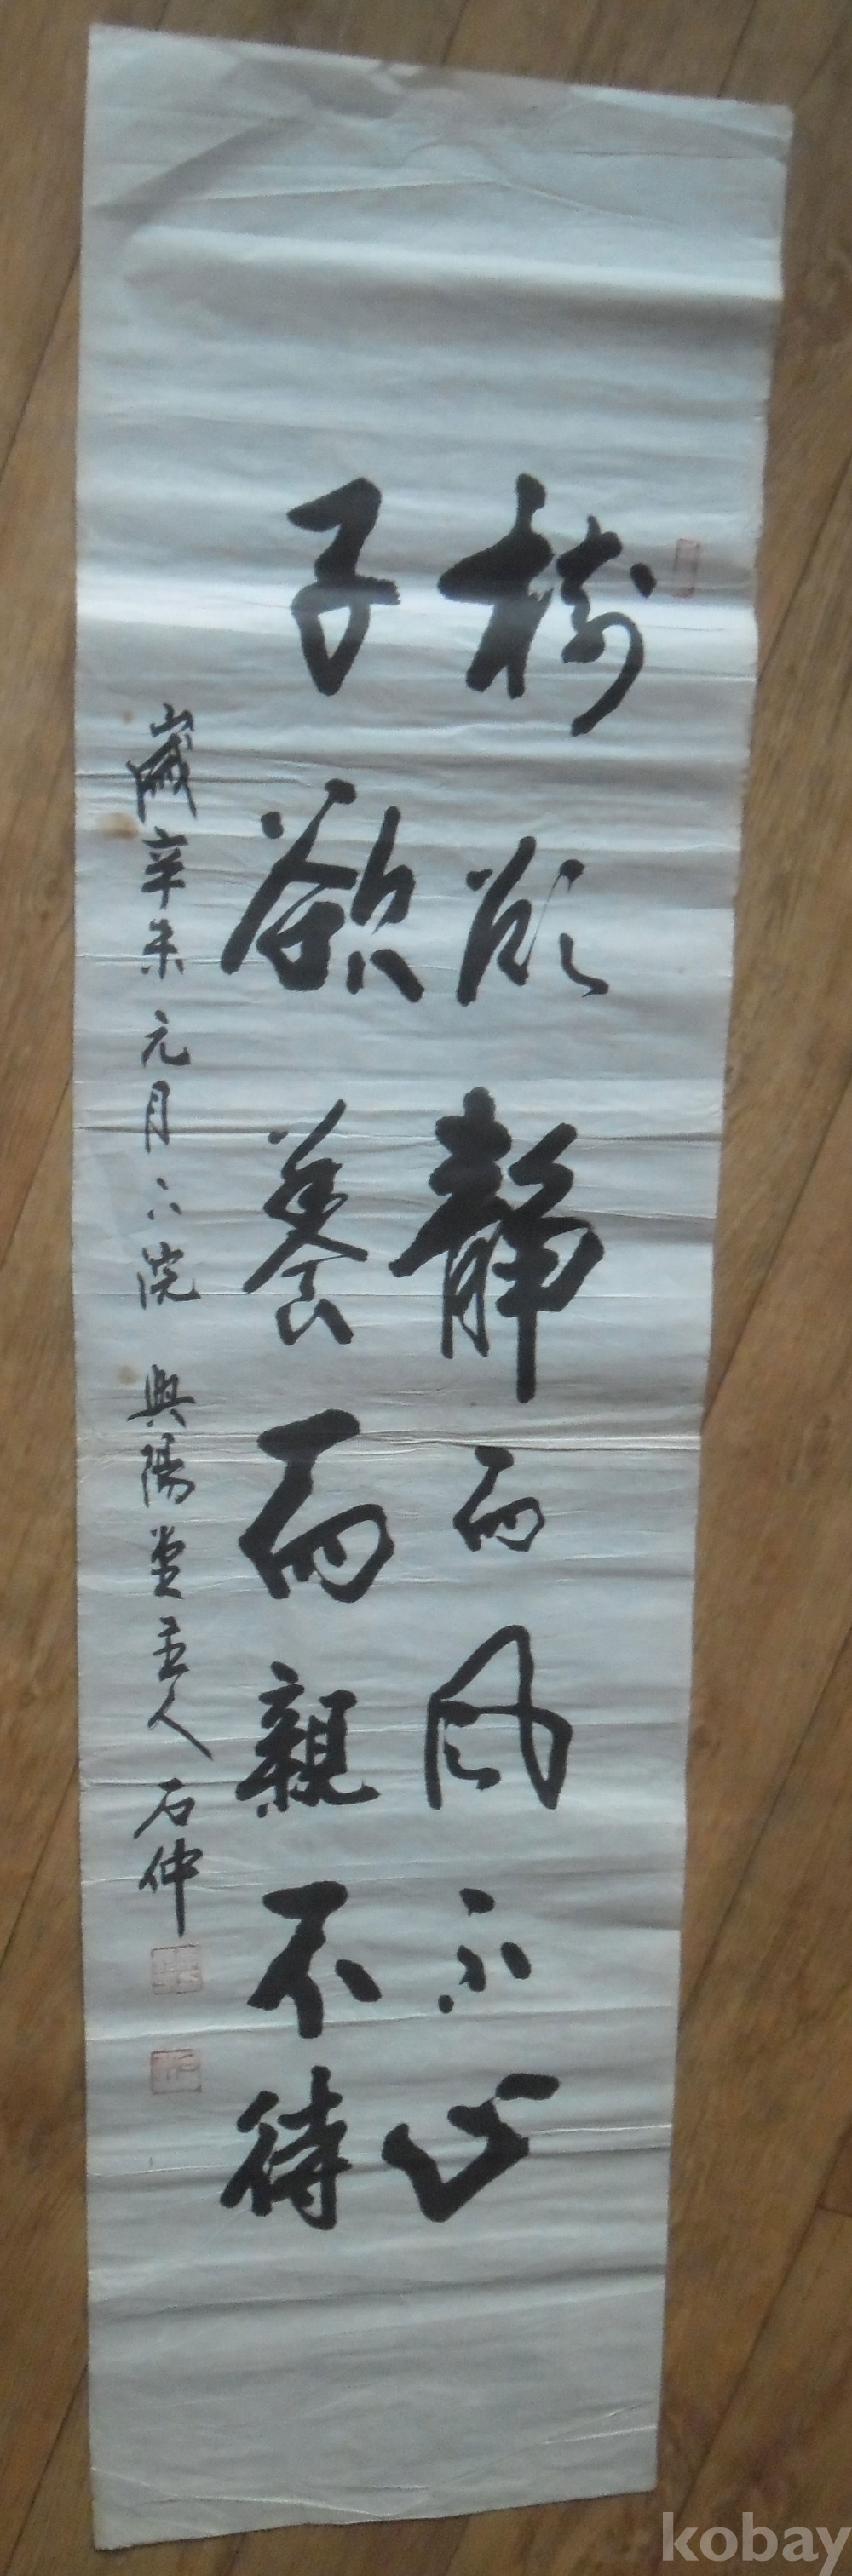 樹欲靜而风不止
子欲養而親不待
歲辛未元月 浣 興陽堂主人 石仲
kobay